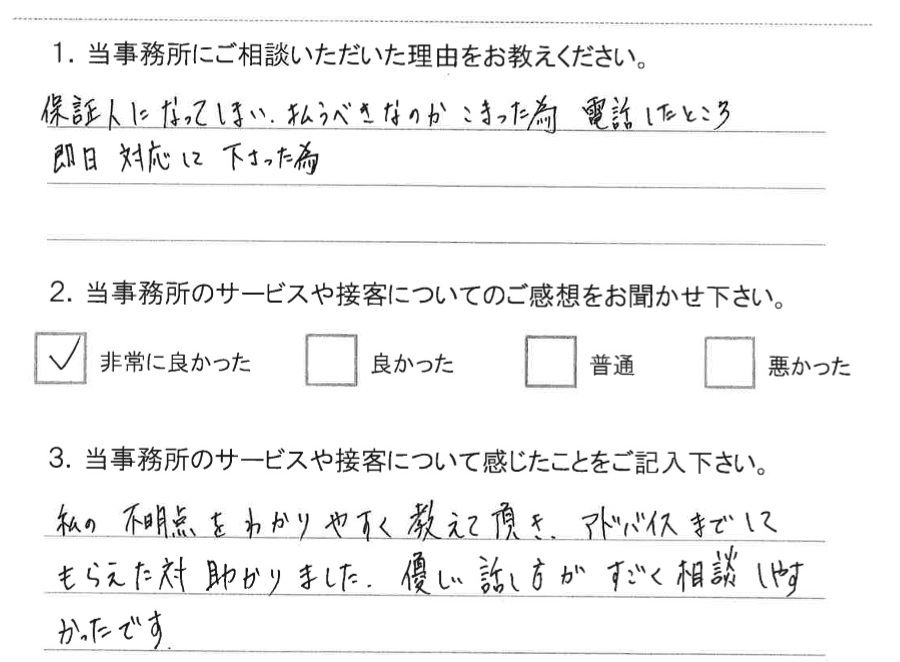 1. 当事務所にご相談いただいた理由をお教えください。
保証人になってしまい、払うべきなのか こまった為 電話したところ
即日 対応して 下さった為
2. 当事務所のサービスや接客についてのご感想をお聞かせ下さい。
非常に良かった 良かった 普通 悪かった
3. 当事務所のサービスや接客について感じたことをご記入下さい。
私の 不明点を わかりやすく 教えて頂き、アドバイスまでして
もらえた対 助かりました。優しい話し方が すごく相談しやす
かったです。